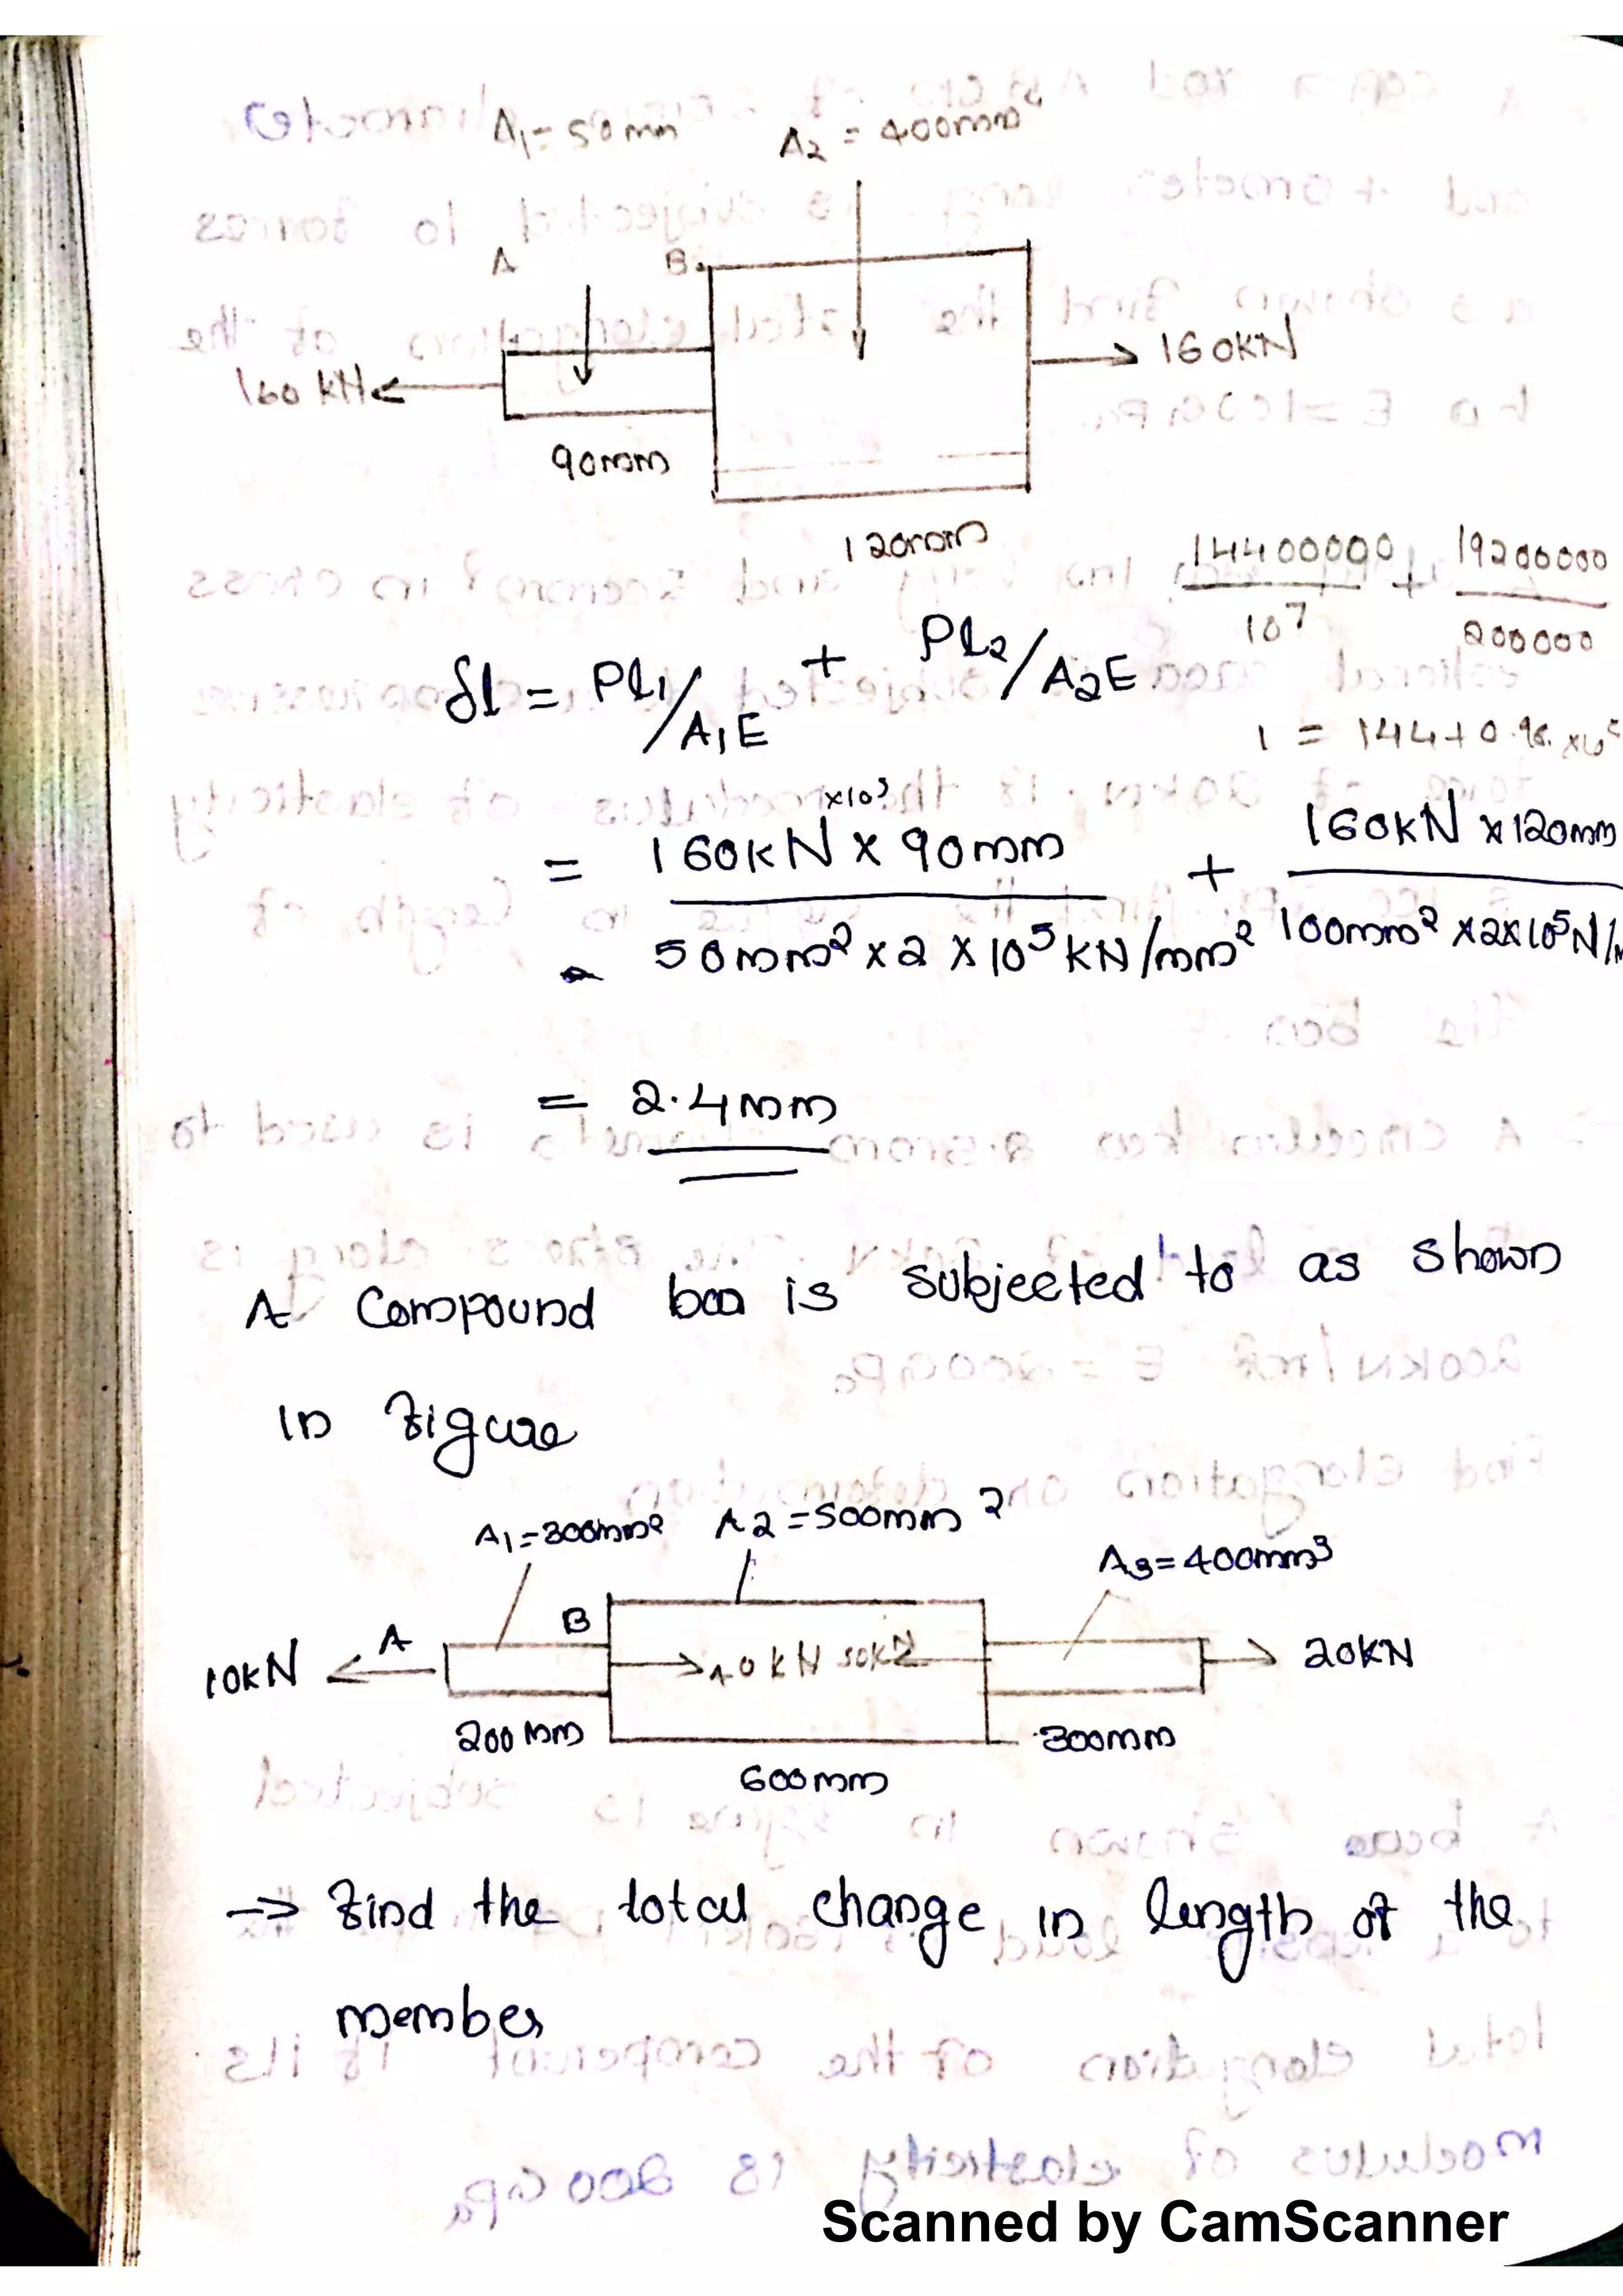 A₁ = 50mm   A₂ = 400mm
A   B
160 kN   160kN
90mm
120mm
14400000/10⁷ + 19200000/200000
δl = Pl₁/A₁E + Pl₂/A₂E
= 144+0.96.
×10³
= 160kN × 90mm / 50mm² × 2 × 10⁵ kN/mm² + 160kN × 120mm / 100mm² × 2×10⁵N/
= 2.4mm
A Compound bar is subjected to as shown
in figure
A₁=300mm²   A2=500mm²
A₃=400mm³
A   B
10kN   40kN   50kN   20kN
200mm   300mm
600mm
→ Find the total change in length of the
member
Scanned by CamScanner